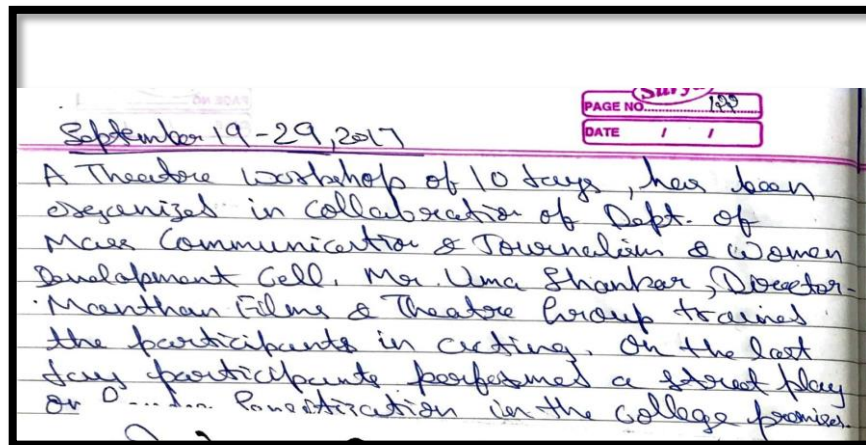 Surya
PAGE NO. 122
DATE / /
September 19-29, 2017
A Theatre workshop of 10 days, has been
organized in collabration of Dept. of
Mass Communication & Journalism & Women
Development Cell. Mr. Uma Shankar, Director-
Manthan Films & Theatre Group trained
the participants in acting. On the last
day participants performed a street play
on in the college premises.